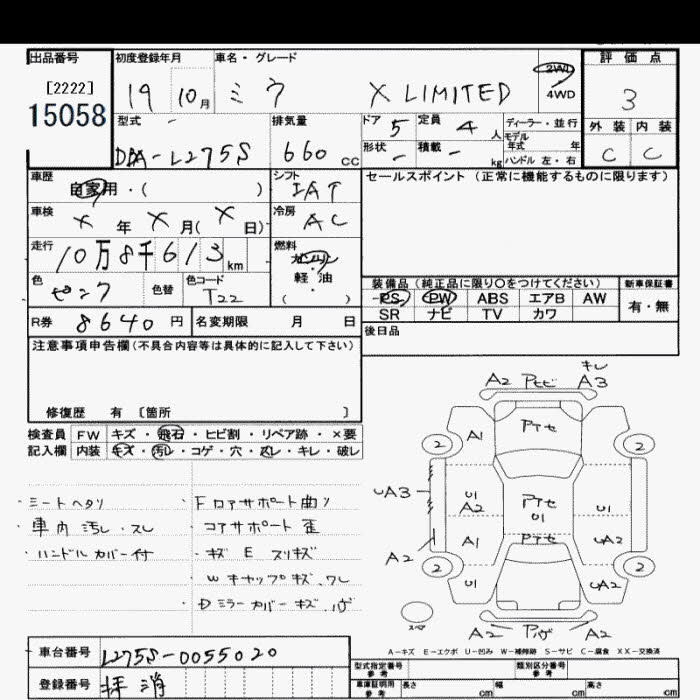 出品番号 初度登録年月 車名・グレード 評価点
[2222]
15058
19 10月 ミラ X LIMITED 2WD 4WD 3
型式 排気量 ドア 5 定員 4人 ディーラー・並行 外装 内装
モデル年式 年
DBA-L275S 660cc 形状 - 積載 - kg ハンドル 左・右 C C
車歴 自家用・( ) シフト IAT セールスポイント (正常に機能するものに限ります)
車検 × 年 × 月( × 日) 冷房 AC
走行 10万8千613km 燃料 ガソリン・軽油 ( )
色 ピンク 色替 色コード T22 装備品 (純正品に限り○をつけてください) 新車保証書
PS PW ABS エアB AW 有・無
R券 8640円 名変期限 月 日 SR ナビ TV カワ
注意事項申告欄(不具合内容等は具体的に記入して下さい) 後日品
修復歴 有 〔箇所 〕
検査員 FW キズ・飛石・ヒビ割・リペア跡・×要
記入欄 内装 キズ・汚レ・コゲ・穴・スレ・キレ・破レ
・シートヘタリ ・Fロアサポート曲リ
・車内汚レ・スレ ・コアサポート歪
・ハンドルカバー付 ・キズ E スリキズ
Wキャップキズ、ワレ
キレ
A2 A3
A1 PTセ
2 2
UA3 U1 A2 PTセ U1 U1
A2 A1 PTセ UA2
2 2
U1 UA2
スペア A2 A2
A-キズ E-エクボ U-凹み W-補修跡 S-サビ C-腐食 XX-交換済
車台番号 L275S-0055020 型式指定番号 参考 類別区分番号 参考
登録番号 抹消 車庫証明用 参考 長さ cm 幅 cm 高さ cm